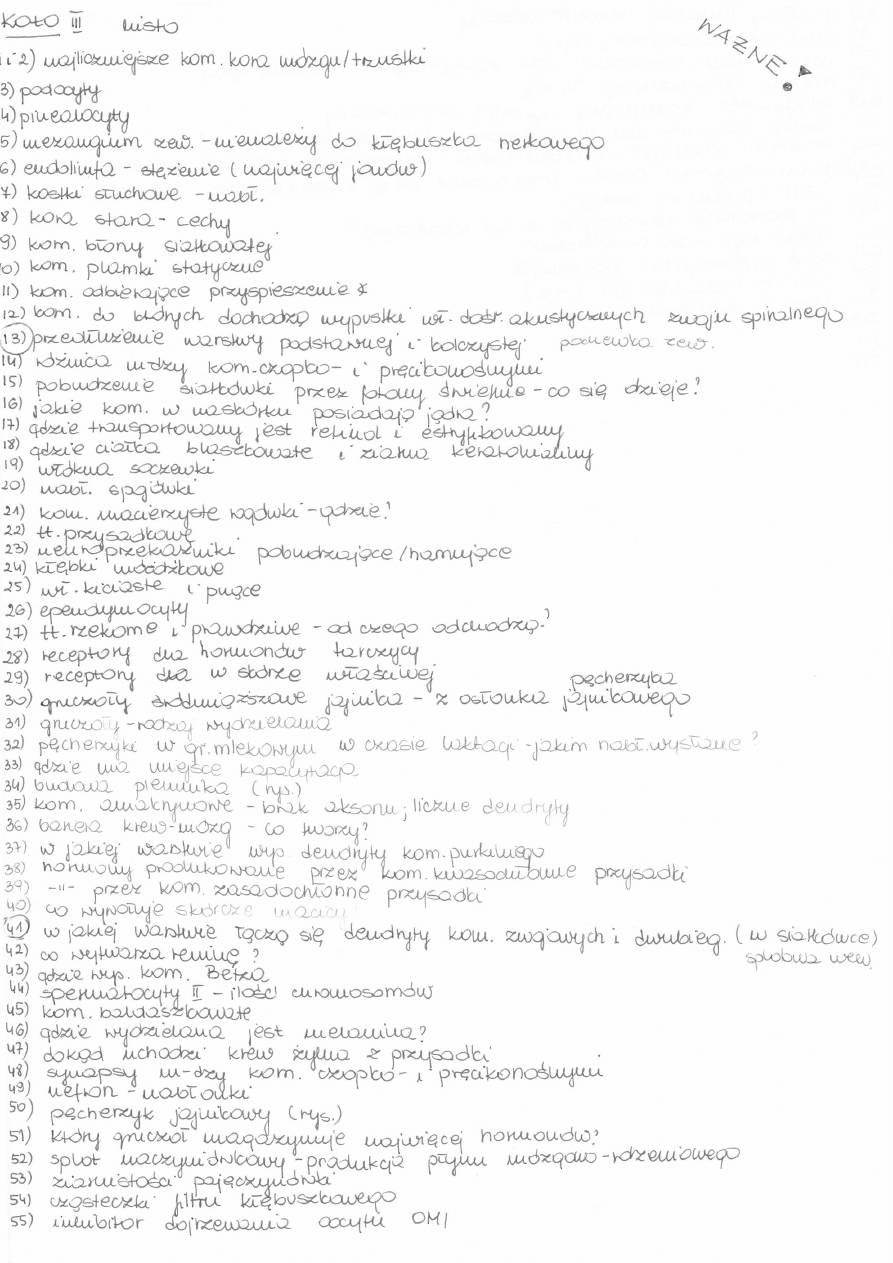 KOŁO III histo
WAŻNE!
1 i 2) najliczniejsze kom. kora mózgu/trzustki
3) podocyty
4) pinealocyty
5) mezangium zew. - nienależy do kłębuszka nerkowego
6) endolimfa - stężenie (najwięcej jonów)
7) kostki słuchowe - nabł.
8) kora stara - cechy
9) kom. błony siatkowatej
10) kom. plamki statyczne
11) kom. odbierające przyspieszenie *
12) kom. do których dochodzą wypustki wł. dośr. akustycznych zwoju spiralnego
13) przedłużenie warstwy podstawnej i kolczystej pochewka zew.
14) różnica m-dzy kom. czopko- i pręcikonośnymi
15) pobudzenie siatkówki przez fotony świetlne - co się dzieje?
16) jakie kom. w naskórku posiadają jądra?
17) gdzie transportowany jest retinol i estryfikowany
18) gdzie ciałka blaszkowate i ziarna keratohialiny
19) włókna soczewki
20) nabł. spojówki
21) kom. macierzyste rogówki - gdzie?
22) tt. przysadkowe
23) neuroprzekaźniki pobudzające/hamujące
24) kłębki móżdżkowe
25) wł. kiciaste i pnące
26) ependymocyty
27) tt. rzekome i prawdziwe - od czego odchodzą?
28) receptory dla hormonów tarczycy
29) receptory dla w skórze właściwej
30) gruczoły śródmiąższowe jajnika - z osłonka pęcherzyka jajnikowego
31) gruczoły - rodzaj wydzielania
32) pęcherzyki w gr. mlekowym w czasie laktacji - jakim nabł. wysłane?
33) gdzie ma miejsce kapacytacja
34) budowa plemnika (rys.)
35) kom. amakrynowe - brak aksonu, liczne dendryty
36) bariera krew-mózg - co tworzy?
37) w jakiej warstwie wyp. dendryty kom. purkiniego
38) hormony produkowane przez kom. kwasochłonne przysadki
39) -"- przez kom. zasadochłonne przysadki
40) co wywołuje skórcze macicy
41) w jakiej warstwie łączą się dendryty kom. zwojowych i dwubieg. (w siatkówce) splotowa wew.
42) co wytwarza reninę?
43) gdzie wyp. kom. Betza
44) spermatocyty II - ilość chromosomów
45) kom. baldaszkowate
46) gdzie wydzielana jest melanina?
47) dokąd uchodzi krew żylna z przysadki
48) synapsy m-dzy kom. czopko- i pręcikonośnymi
49) nefron - nabłonki
50) pęcherzyk jajnikowy (rys.)
51) który gruczoł magazynuje najwięcej hormonów?
52) splot naczyniówkowy - produkcja płynu mózgowo-rdzeniowego
53) ziarnistości pajęczynówki
54) cząsteczki filtru kłębuszkowego
55) inhibitor dojrzewania oocytu OMI